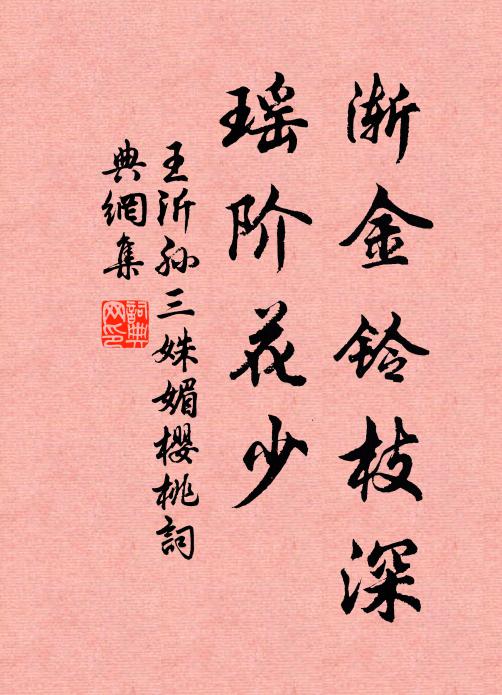 渐金铃枝深
瑶阶花少
王沂孙三姝媚樱桃詞
典網集
詞典网印